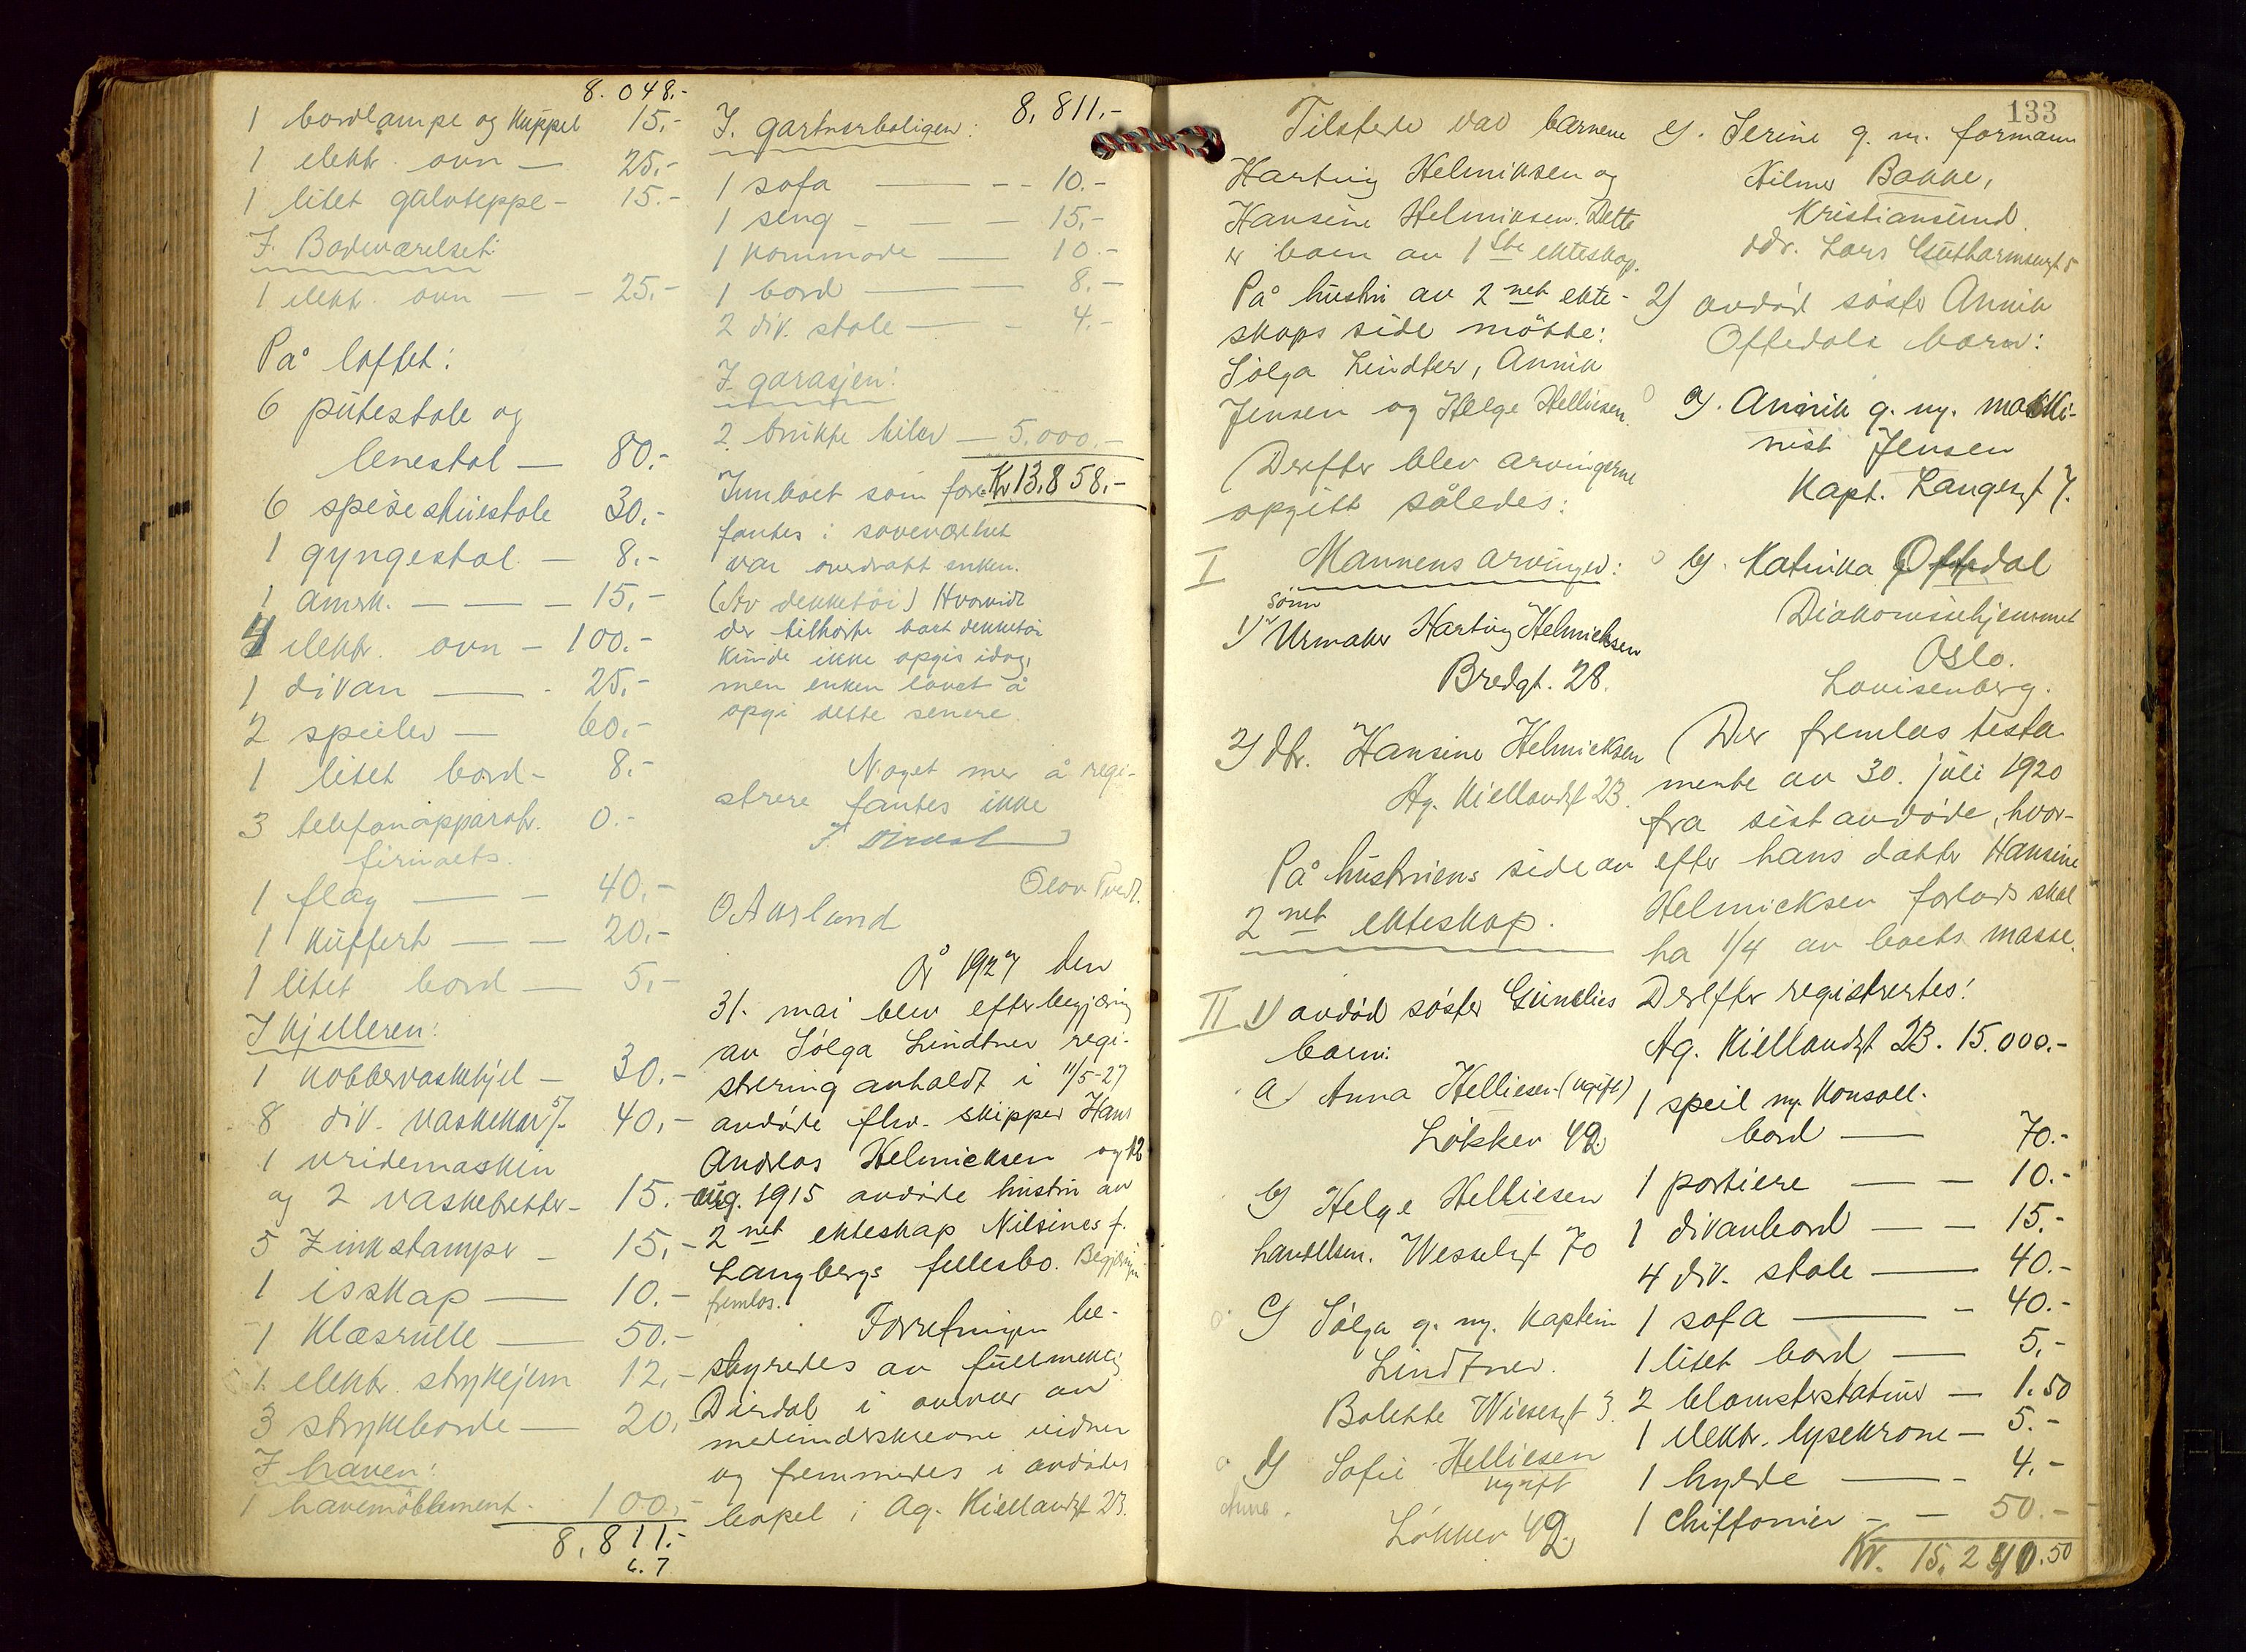 8.048.-
1 bordlampe og Kuppel 15,-
1 elektr. ovn — 25,-
1 litet gulvteppe - 15.-
I. Badeværelset:
1 elektr. ovn — - 25,-
På loftet:
6 pütestole og
lenestol — 80.-
6 spisestuestole 30.-
1 gyngestol — 8.-
1 amrk. — — — 15,-
4 elektr. ovn - 100.-
1 divan — - 25,-
2 speiler — 60.-
1 litet bord - 8.-
3 telefonapparatr. 0.-
firmaets.
1 flag — - 40.-
1 Kuffert — - 20.-
1 litet bord — 5,-
I Kjelleren:
1 Kobbervaskekjel — 30.-
8 div. vaskekar 5/- 40,-
1 vridemaskin
og 2 vaskebretter - 15.-
5 Zinkstamper - 15,-
1 isskap — 10.-
1 Klæsrulle — 50.-
1 elektr. strykejern 12,-
3 strykeborde — 20.-
I haven:
1 havemöblement - 100.-
8,811.-
6.7
8,811.-
I. gartnerboligen:
1 sofa — - - 10.-
1 seng - — - 15,-
1 Kommode — 10.-
1 bord — 8.-
2 div. stole — - 4.-
I garasjen:
2 brukte biler — 5.000.-
Kr. 13.858.-
Innboet som fore-
fantes i soveværelset
var overdratt enken.
(Av dekketöi) Hvorvidt
der tilhörte boet dekketöi
kunde ikke opgis idag,
men enken lovet å
opgi dette senere.
Noget mer å regi-
strere fantes ikke
F. Dirdal
Olav Tvedt.
O Aarland
År 1927 den
31. mai blev efter begjæring
av Solga Lindtner regi-
strering avholdt i 11/5-27
avdöde fhv. skipper Hans
Andreas Helmicksen og 12
aug. 1915 avdöde hustru av
2net ekteskap Nilsines f.
Langbergs fellesbo. Begjæringen
fremlas.
Forretningen be-
styredes av fullmektig
Dirdal i overvær av
medunderskrevne vidner
og fremmedes i avdödes
bopel i Ag. Kiellandsgt 23.
133
Tilstede var barnene
Hartvig Helmiksen og
Hansine Helmiksen. Dette
er barn av 1ste ekteskap.
På hustru av 2net ekte-
skaps side mötte:
Solga Lindtner, Annik
Jensen og Helge Helliesen.
Derefter blev arvingerne
opgitt således:
I Mannens arvinger:
sönn
1) Urmaker Hartvig Helmicksen
Bredgt. 28.
2) dtr. Hansine Helmicksen
Ag. Kiellandsgt 23.
På hustruens side av
2net ekteskap.
II 1) avdöd söster Gunelies
barn:
a) Anna Helliesen (ugift)
Lökkev 49.
b) Helge Helliesen
handelsm. Wesselsgt 70
c) Solga g. m. Kaptein
Lindtner.
Bolette Wiesesgt 3.
d) Sofie Helliesen
ugift
Lökkev 49.
e). Serine g. m. formann
Hilmer Bakke,
Kristiansund.
adr. Lars Guthormsensgt 5
2) avdöd söster Annik
Oftedals barn:
a). Annik g. m. maski-
nist Jensen
Kapt. Langesgt 7.
b). Katinka Oftedal
Diakonissehjemmet
Oslo.
Lovisenberg.
Der fremlas testa-
mente av 30. juli 1920
fra sistavdöde, hvor-
efter hans datter Hansine
Helmicksen forlods skal
ha 1/4 av boets masse.
Derefter registrertes:
Ag. Kiellandsgt 23. 15.000.-
1 speil m. Konsoll-
bord — 70.-
1 portiere — - 10.-
1 divanbord — - 15.-
4 div. stole — 40.-
1 sofa — - 40.-
1 litet bord — 5,-
2 blomsterstativer — 1.50
1 elektr. lysekrone — 5.-
1 hylde — - 4.-
1 Chiffonier - - 50.-
Kr. 15.240.50